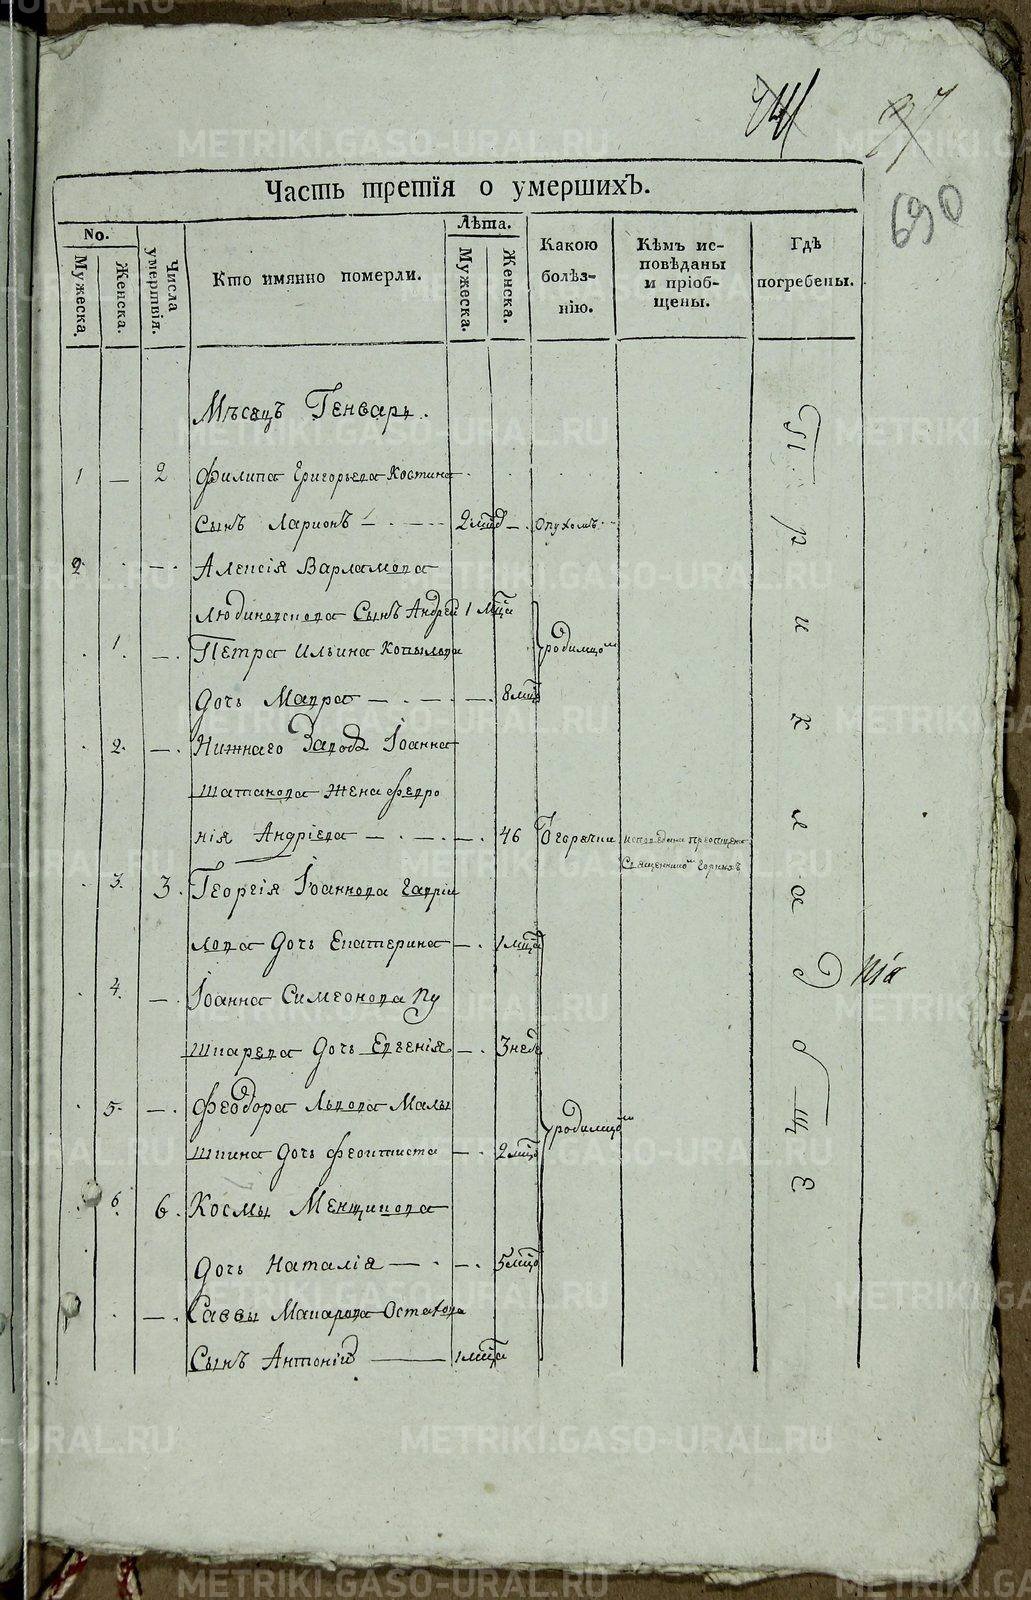 690
Часть третія о умершихъ.
No.
Мужеска.
Женска.
Числа умертвія.
Кто имянно померли.
Лѣта.
Мужеска.
Женска.
Какою болѣз-нію.
Кѣмъ ис-повѣданы и пріоб-щены.
Гдѣ погребены.
Мѣсяцъ Генварь.
1 — 2 Филипа Григорьева Костина
Сынъ Ларионъ — 2 мцъ — Опухомъ
2 — Алексія Варламова
Людиновскова Сынъ Андрей 1 мца
1 — Петра Ильина Копылова
Дочь Мавра — — 8 мцъ
родимцомъ
2 — Нижнаго Завода Іоанна
Шатакова Жена Февро
нія Андріева — — 46 Горячки исповедана преобщена
Священникомъ
3 3 Георгія Іоаннова Гаври
лова Дочь Екатерина — 1 мца
4 — Іоанна Симеонова Пу
шкарева Дочь Евгенія — 3 неде
5 — Феодора Львова Малы
шкина Дочь Феоктиста — 2 мцъ
родимцомъ
6 6 Космы Менщикова
Дочь Наталія — — 5 мцъ
— Саввы Макарова Остахова
Сынъ Антоній — 1 мца
При кла д бище
METRIKI.GASO-URAL.RU